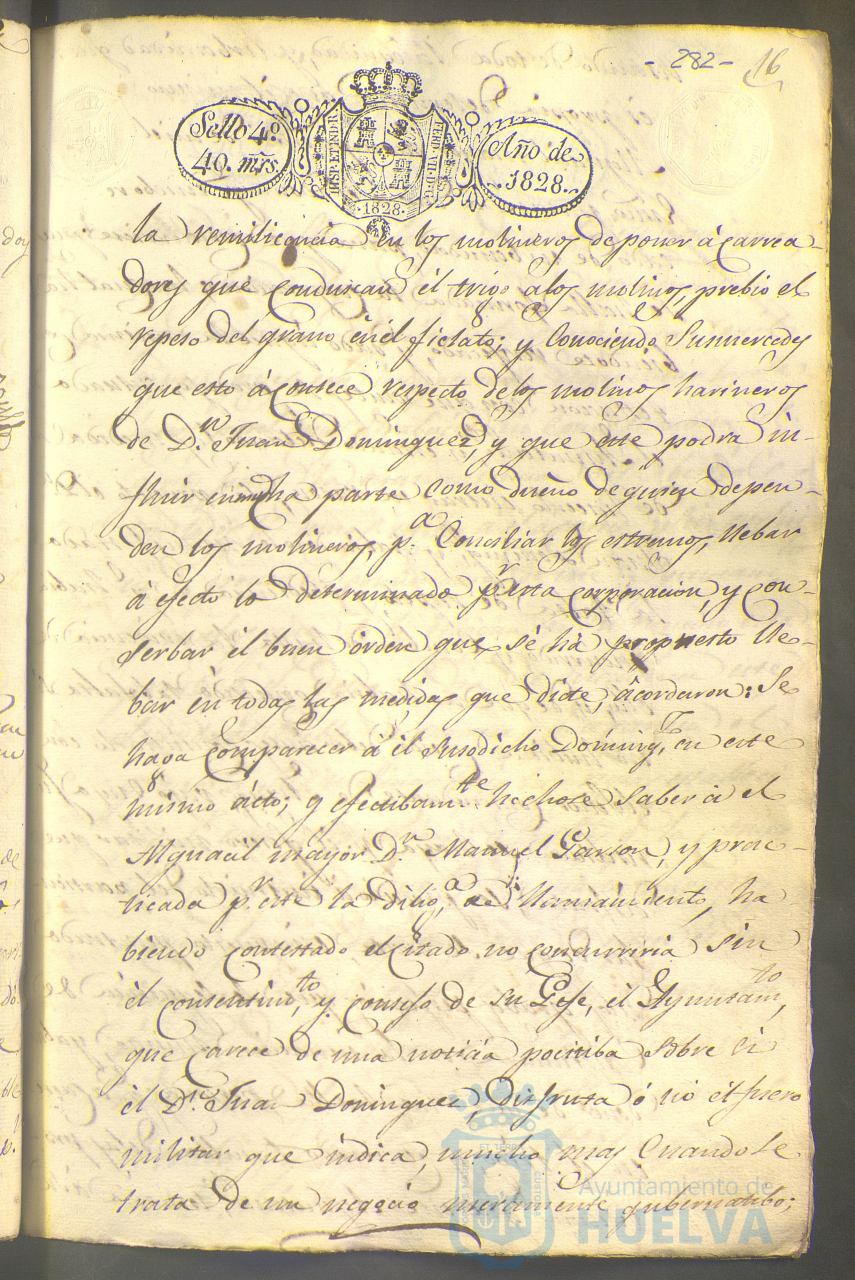 - 282 -
16
Sello 4º
40. mrs.
HISP. ET IND. R.
FERD. VII. D. G.
·1828·
Año de
1828.
la remilicencia en los molineros de poner á carrea-
dores que conduzcan el trigo a los molinos, prebio el
repeso del grano en el fielato; y Conociendo Sus mercedes
que esto áconsece respecto de los molinos harineros
de Dn. Juan Dominguez, y que este podra in-
fluir en mucha parte como dueño de quien depen-
den los molineros, pa. Conciliar los estremos, llebar
á efecto lo determinado pr. esta corporacion, y con-
serbar el buen órden que se há propuesto lle-
bar en todas las medidas que dicte, ácordaron: Se
haga comparecer á el susodicho Domingz. en este
mismo ácto; y efectibamte. hichose saber á el
Alguacil mayor Dn. Manuel Garson, y prac-
ticada pr. este la diliga. de llamamiento, ha-
biendo contestado el citado no concurriria sin
el consentimto. y consejo de su Gefe, el Ayuntamto,
que carece de una noticia pocitiba sobre si
el Dn. Juan Dominguez, disfruta ó nó el fuero
militar que indica, mucho mas cuando se
trata de un negocio meramente gubernatibo;
Ayuntamiento de
HUELVA